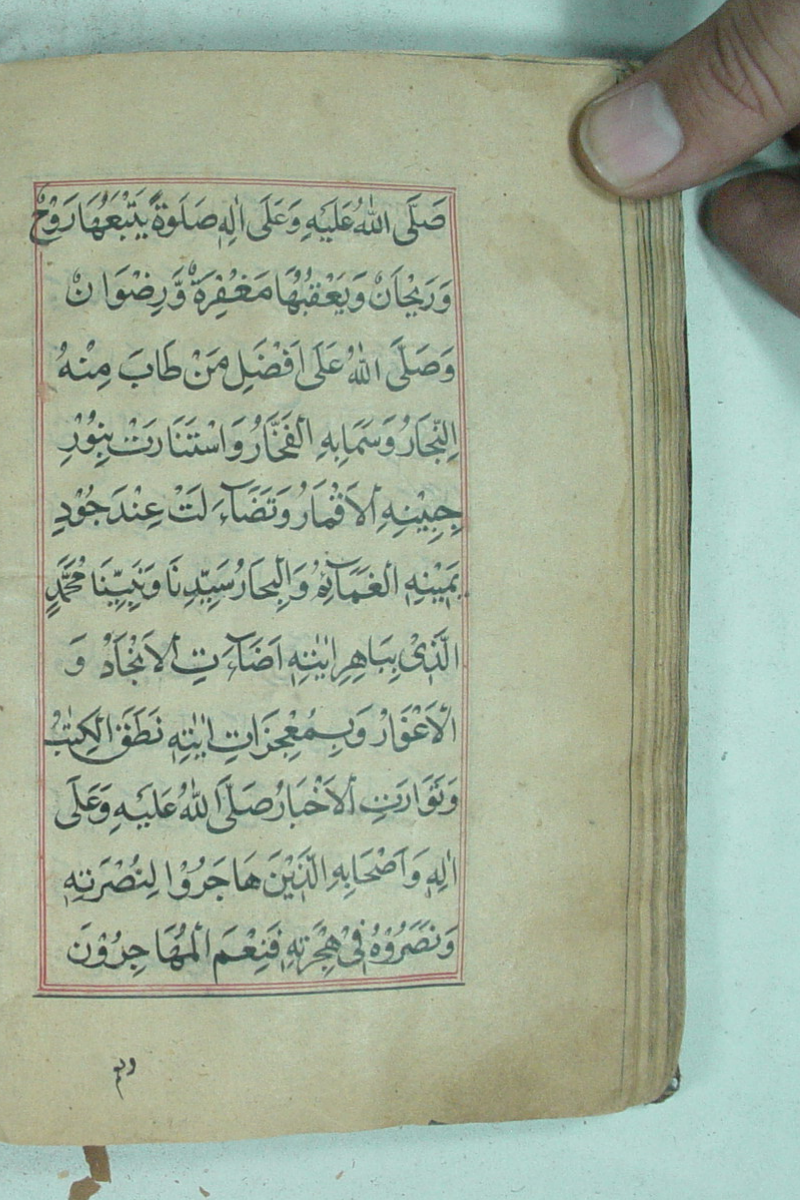 صَلَّى اللهُ عَلَيْهِ وَعَلَى اٰلِهٖ صَلٰوةً يَتْبَعُهَا رَوْحٌ
وَرَيْحَانٌ وَيَعْقُبُهَا مَغْفِرَةٌ وَّرِضْوَانٌ
وَصَلَّى اللهُ عَلَى اَفْضَلِ مَنْ طَابَ مِنْهُ
النِّجَارُ وَسَمَابِهِ الْفَخَّارُ وَاسْتَنَارَتْ بِنُوْرِ
جِبِيْنِهِ الْاَقْمَارُ وَتَضَآءَلَتْ عِنْدَ جُوْدِ
يَمِيْنِهِ الْغَمَآئِمُ وَالْبِحَارُ سَيِّدِنَا وَنَبِيِّنَا مُحَمَّدٍ
الَّذِيْ بِبَاهِرِ اٰيٰتِهٖ اَضَآءَتِ الْاَنْجَادُ وَ
الْاَغْوَارُ وَبِمُعْجِزَاتِ اٰيٰتِهٖ نَطَقَ الْكِتٰبُ
وَتَوَارَتِ الْاَخْبَارُ صَلَّى اللهُ عَلَيْهِ وَعَلَى
اٰلِهٖ وَاَصْحَابِهِ الَّذِيْنَ هَاجَرُوْا لِنُصْرَتِهٖ
وَنَصَرُوْهُ فِيْ هِجْرَتِهٖ فَنِعْمَ الْمُهَاجِرُوْنَ